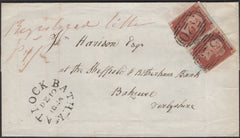 Registered Letter
Jn Harison Esqr
at the Sheffield & Rotherham Bank
Bakewell
Derbyshire
MATLOCK BATH